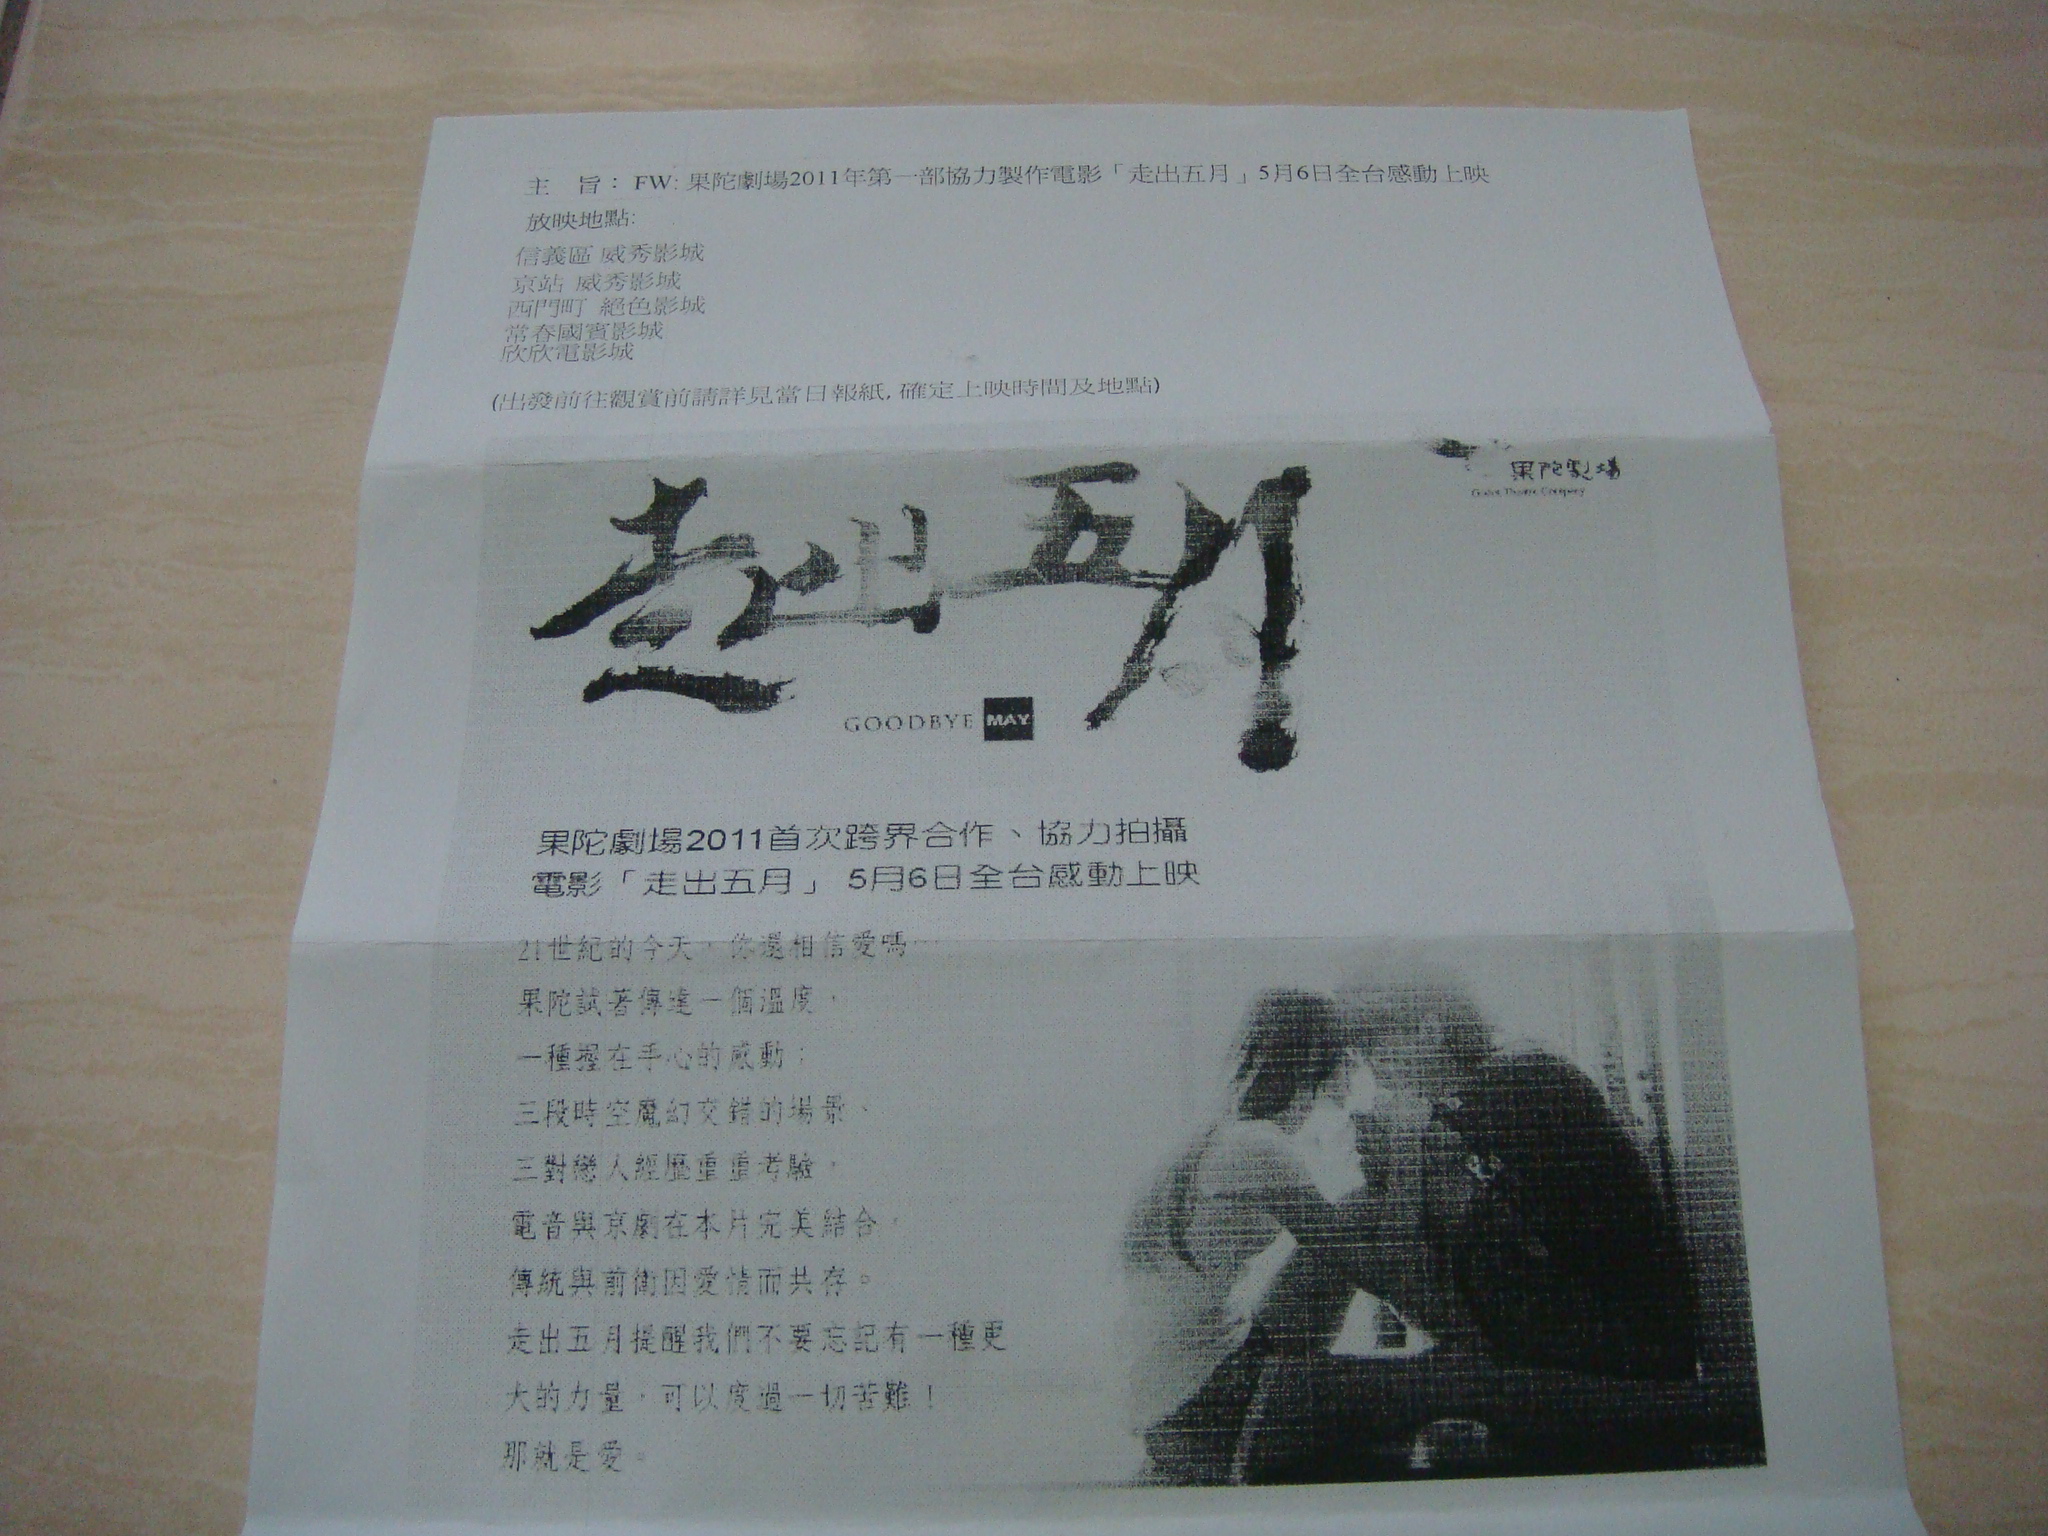 主　旨： FW: 果陀劇場2011年第一部協力製作電影「走出五月」5月6日全台感動上映
放映地點:
信義區 威秀影城
京站 威秀影城
西門町 絕色影城
常春國賓影城
欣欣電影城
(出發前往觀賞前請詳見當日報紙, 確定上映時間及地點)
果陀劇場
Godot Theatre Company
走出五月
GOODBYE MAY
果陀劇場2011首次跨界合作、協力拍攝
電影「走出五月」 5月6日全台感動上映
21世紀的今天，你還相信愛嗎…
果陀試著傳達一個溫度，
一種握在手心的感動；
三段時空魔幻交錯的場景、
三對戀人經歷重重考驗，
電音與京劇在本片完美結合，
傳統與前衛因愛情而共存。
走出五月提醒我們不要忘記有一種更
大的力量，可以度過一切苦難！
那就是愛。